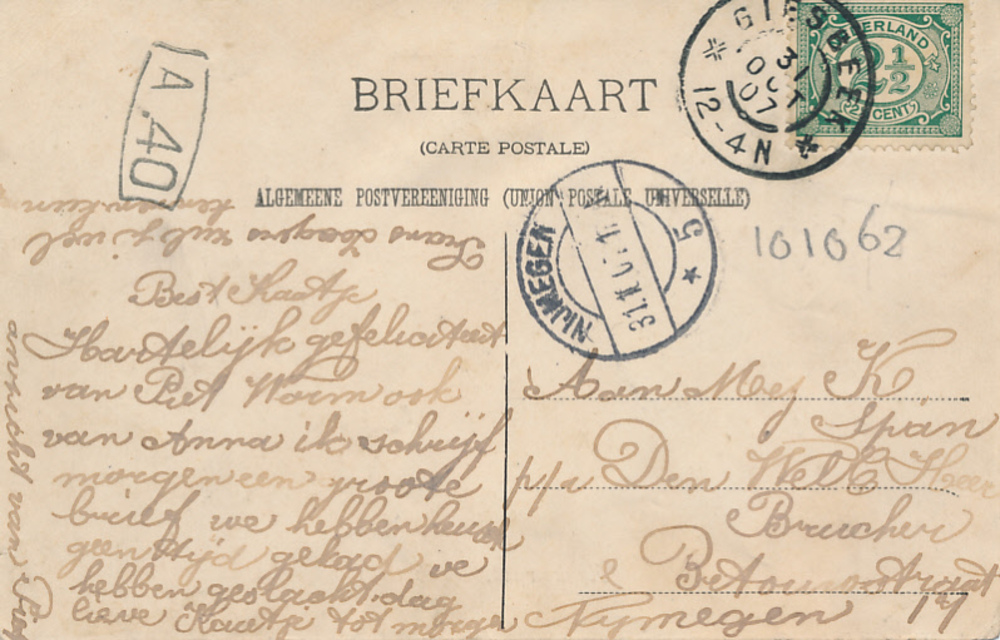 A.40
BRIEFKAART
(CARTE POSTALE)
ALGEMEENE POSTVEREENIGING (UNION POSTALE UNIVERSELLE)
GIESBEEK
31 OCT 07
12-4N
NEDERLAND
2 1/2
CENT
NIJMEGEN
5
101062
Best Kaatje
Hartelijk gefeliciteert
van Piet Worm ook
van Anna ik schrijf
morgen een groote
brief we hebben
geen tijd gehad we
hebben geslacht dag
lieve Kaatje tot morge
Aan Mej K.
Span
p/a Den Welb Heer
Brucher
Nijmegen 17